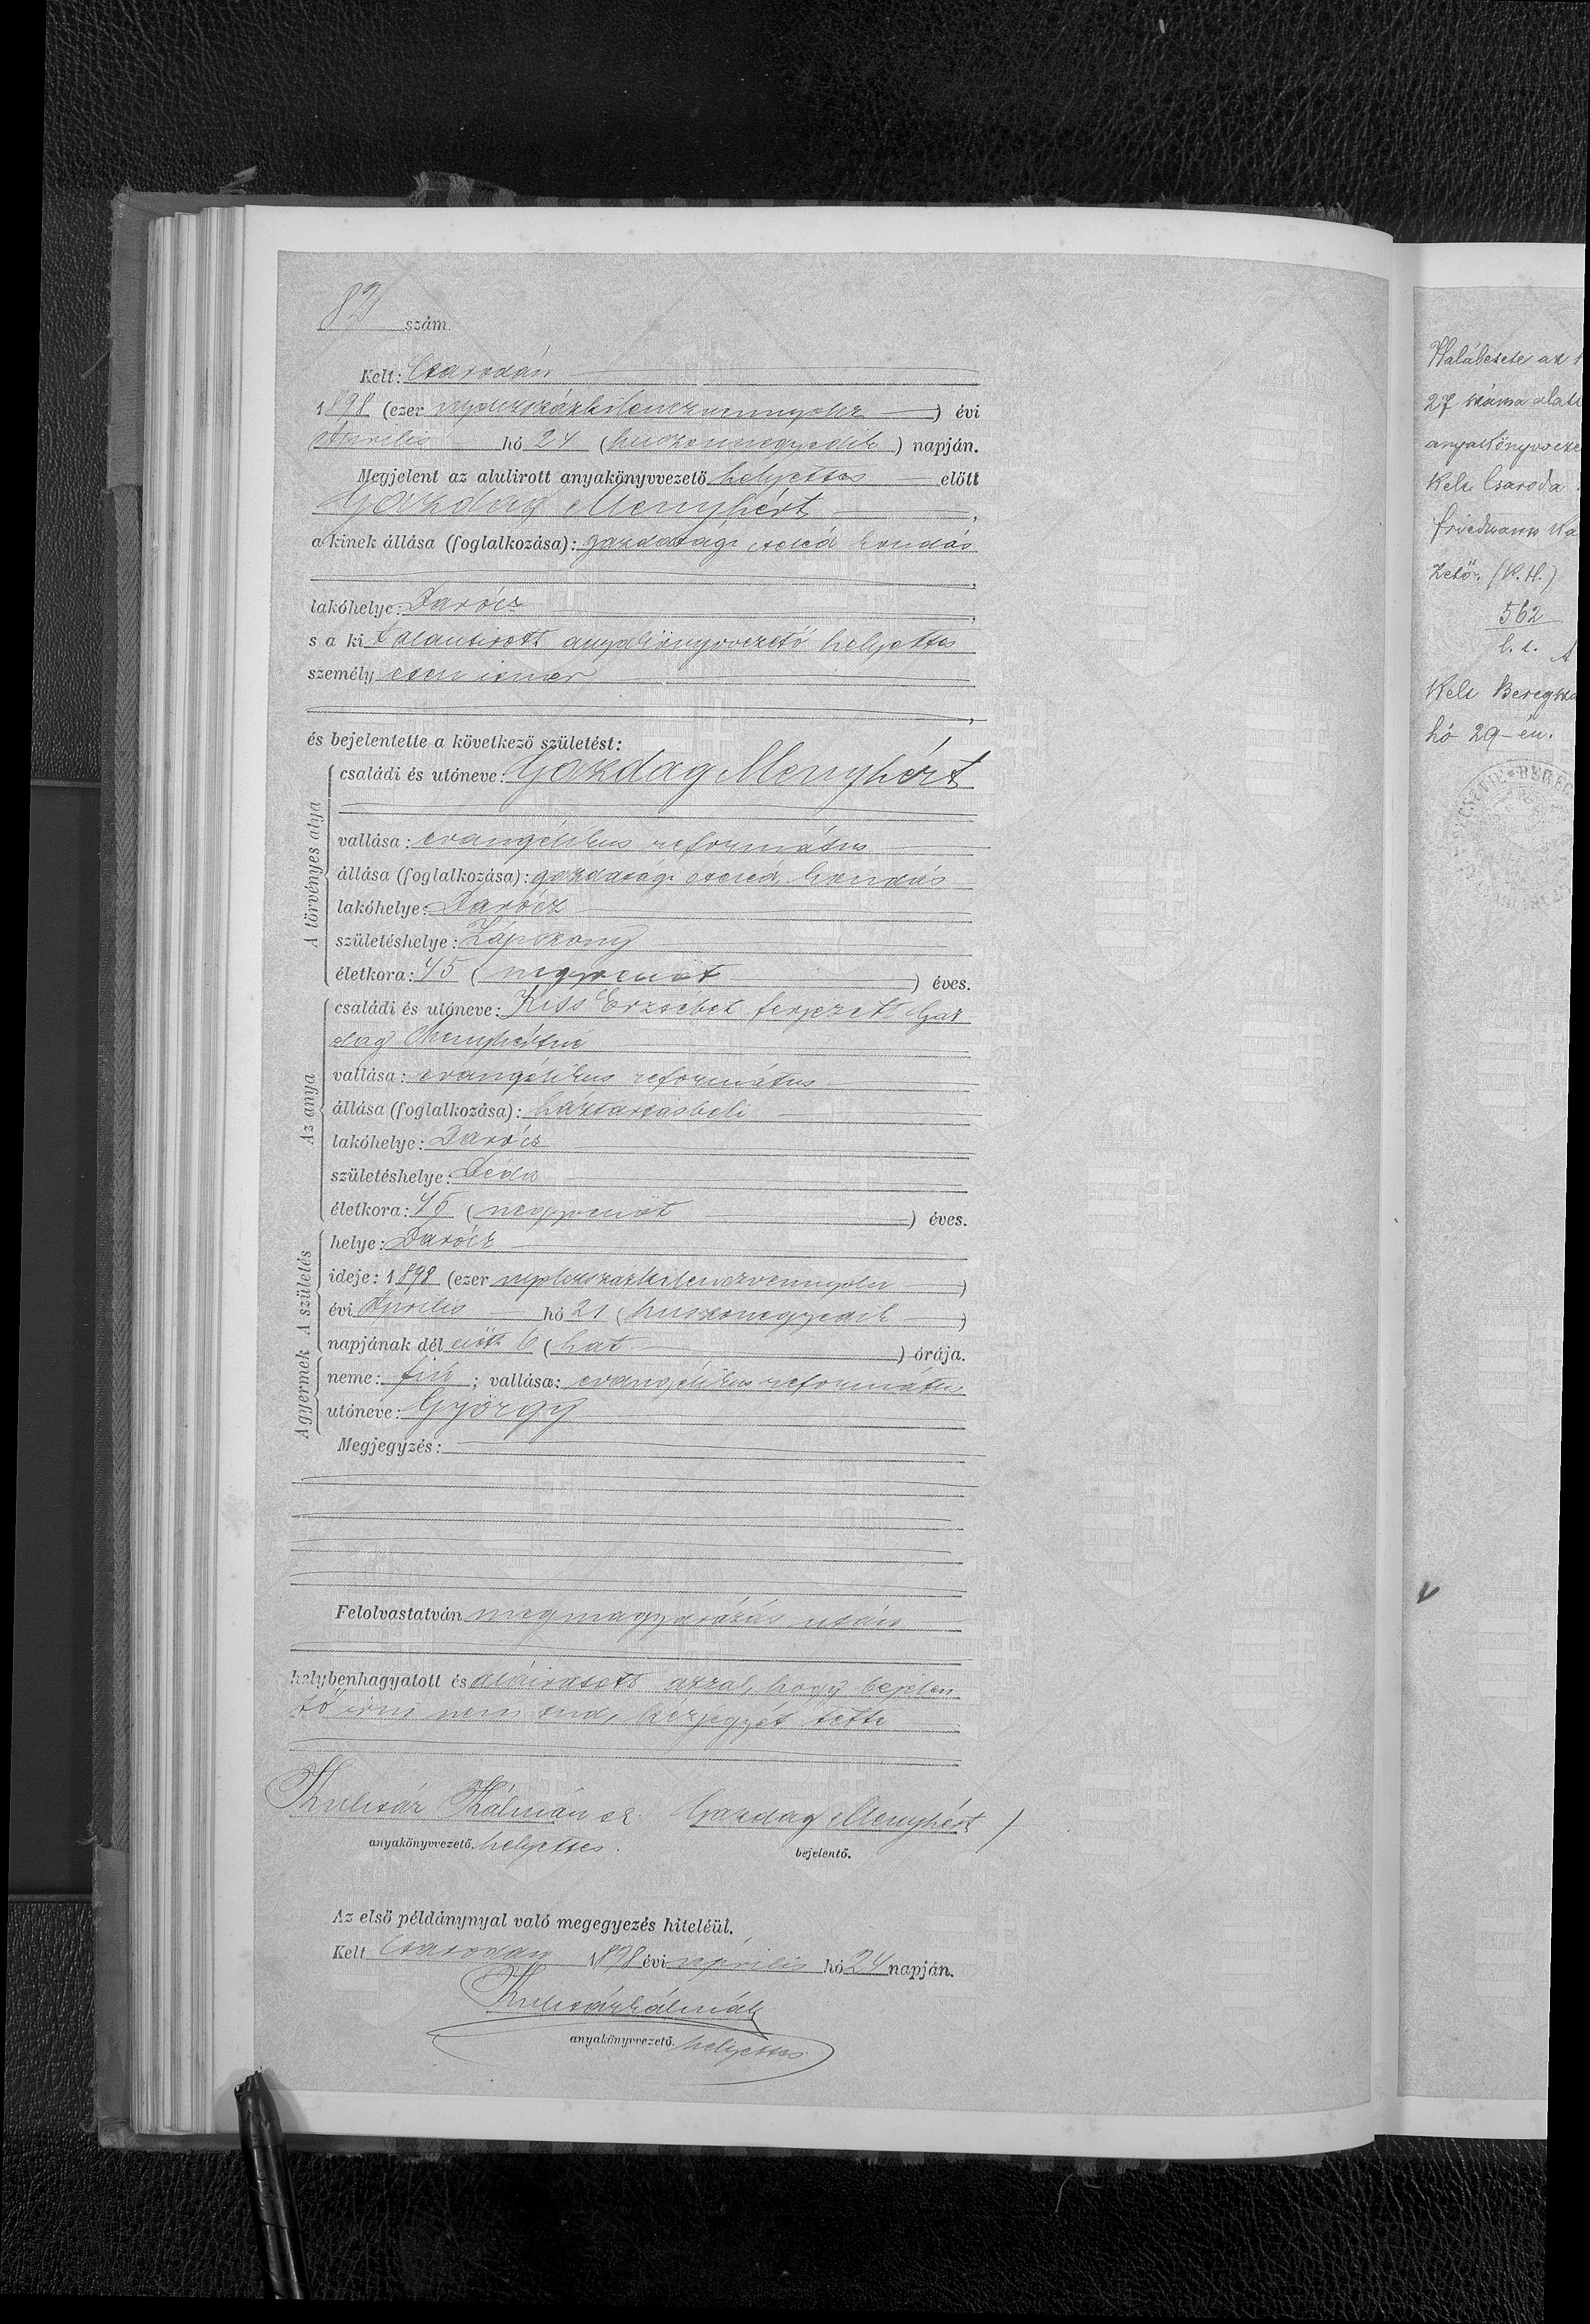 82 szám.
Kelt: Csarodán
1898 (ezer nyolczszázkilenczvennyolcz) évi
Április hó 24 (huszonnegyedik) napján.
Megjelent az alulirott anyakönyvvezető helyettes előtt
Gazdag Menyhért,
a kinek állása (foglalkozása): gazdasági cseléd kondás
,
lakóhelye: Darócz,
s a kit alantirott anyakönyvvezető helyettes
személyesen ismer
,
és bejelentette a következő születést:
A törvényes atya
családi és utóneve: Gazdag Menyhért
vallása: evangélikus református
állása (foglalkozása): gazdasági cseléd, kondás
lakóhelye: Darócz
születéshelye: Zápszony
életkora: 45 (negyvenöt) éves.
Az anya
családi és utóneve: Kiss Erzsébet férjezett Gaz
dag Menyhértné
vallása: evangélikus református
állása (foglalkozása): háztartásbeli
lakóhelye: Darócz
születéshelye: Déda
életkora: 45 (negyvenöt) éves.
A születés
helye: Darócz
ideje: 1898 (ezer nyolczszázkilenczvennyolcz)
évi Április hó 21 (huszonegyedik)
napjának dél előtt 6 (hat) órája.
A gyermek
neme: fiú; vallása: evangélikus református
utóneve: György
Megjegyzés:
Felolvastatván megmagyarázás után
helybenhagyatott és aláiratott azzal, hogy bejelen
tő irni nem tud, kézjegyét tette
Kulcsár Kálmán sk. Gazdag Menyhért
anyakönyvvezető. helyettes. bejelentő.
Az első példánynyal való megegyezés hiteléül.
Kelt Csarodán 1898 évi április hó 24 napján.
Kulcsár Kálmán
anyakönyvvezető. helyettes
Halálesete az
27 száma alatt
anyakönyvveze
Kelt Csaroda
Friedmann Ka
zető. (K.H.)
562
Kelt Beregsza
hó 29-én.